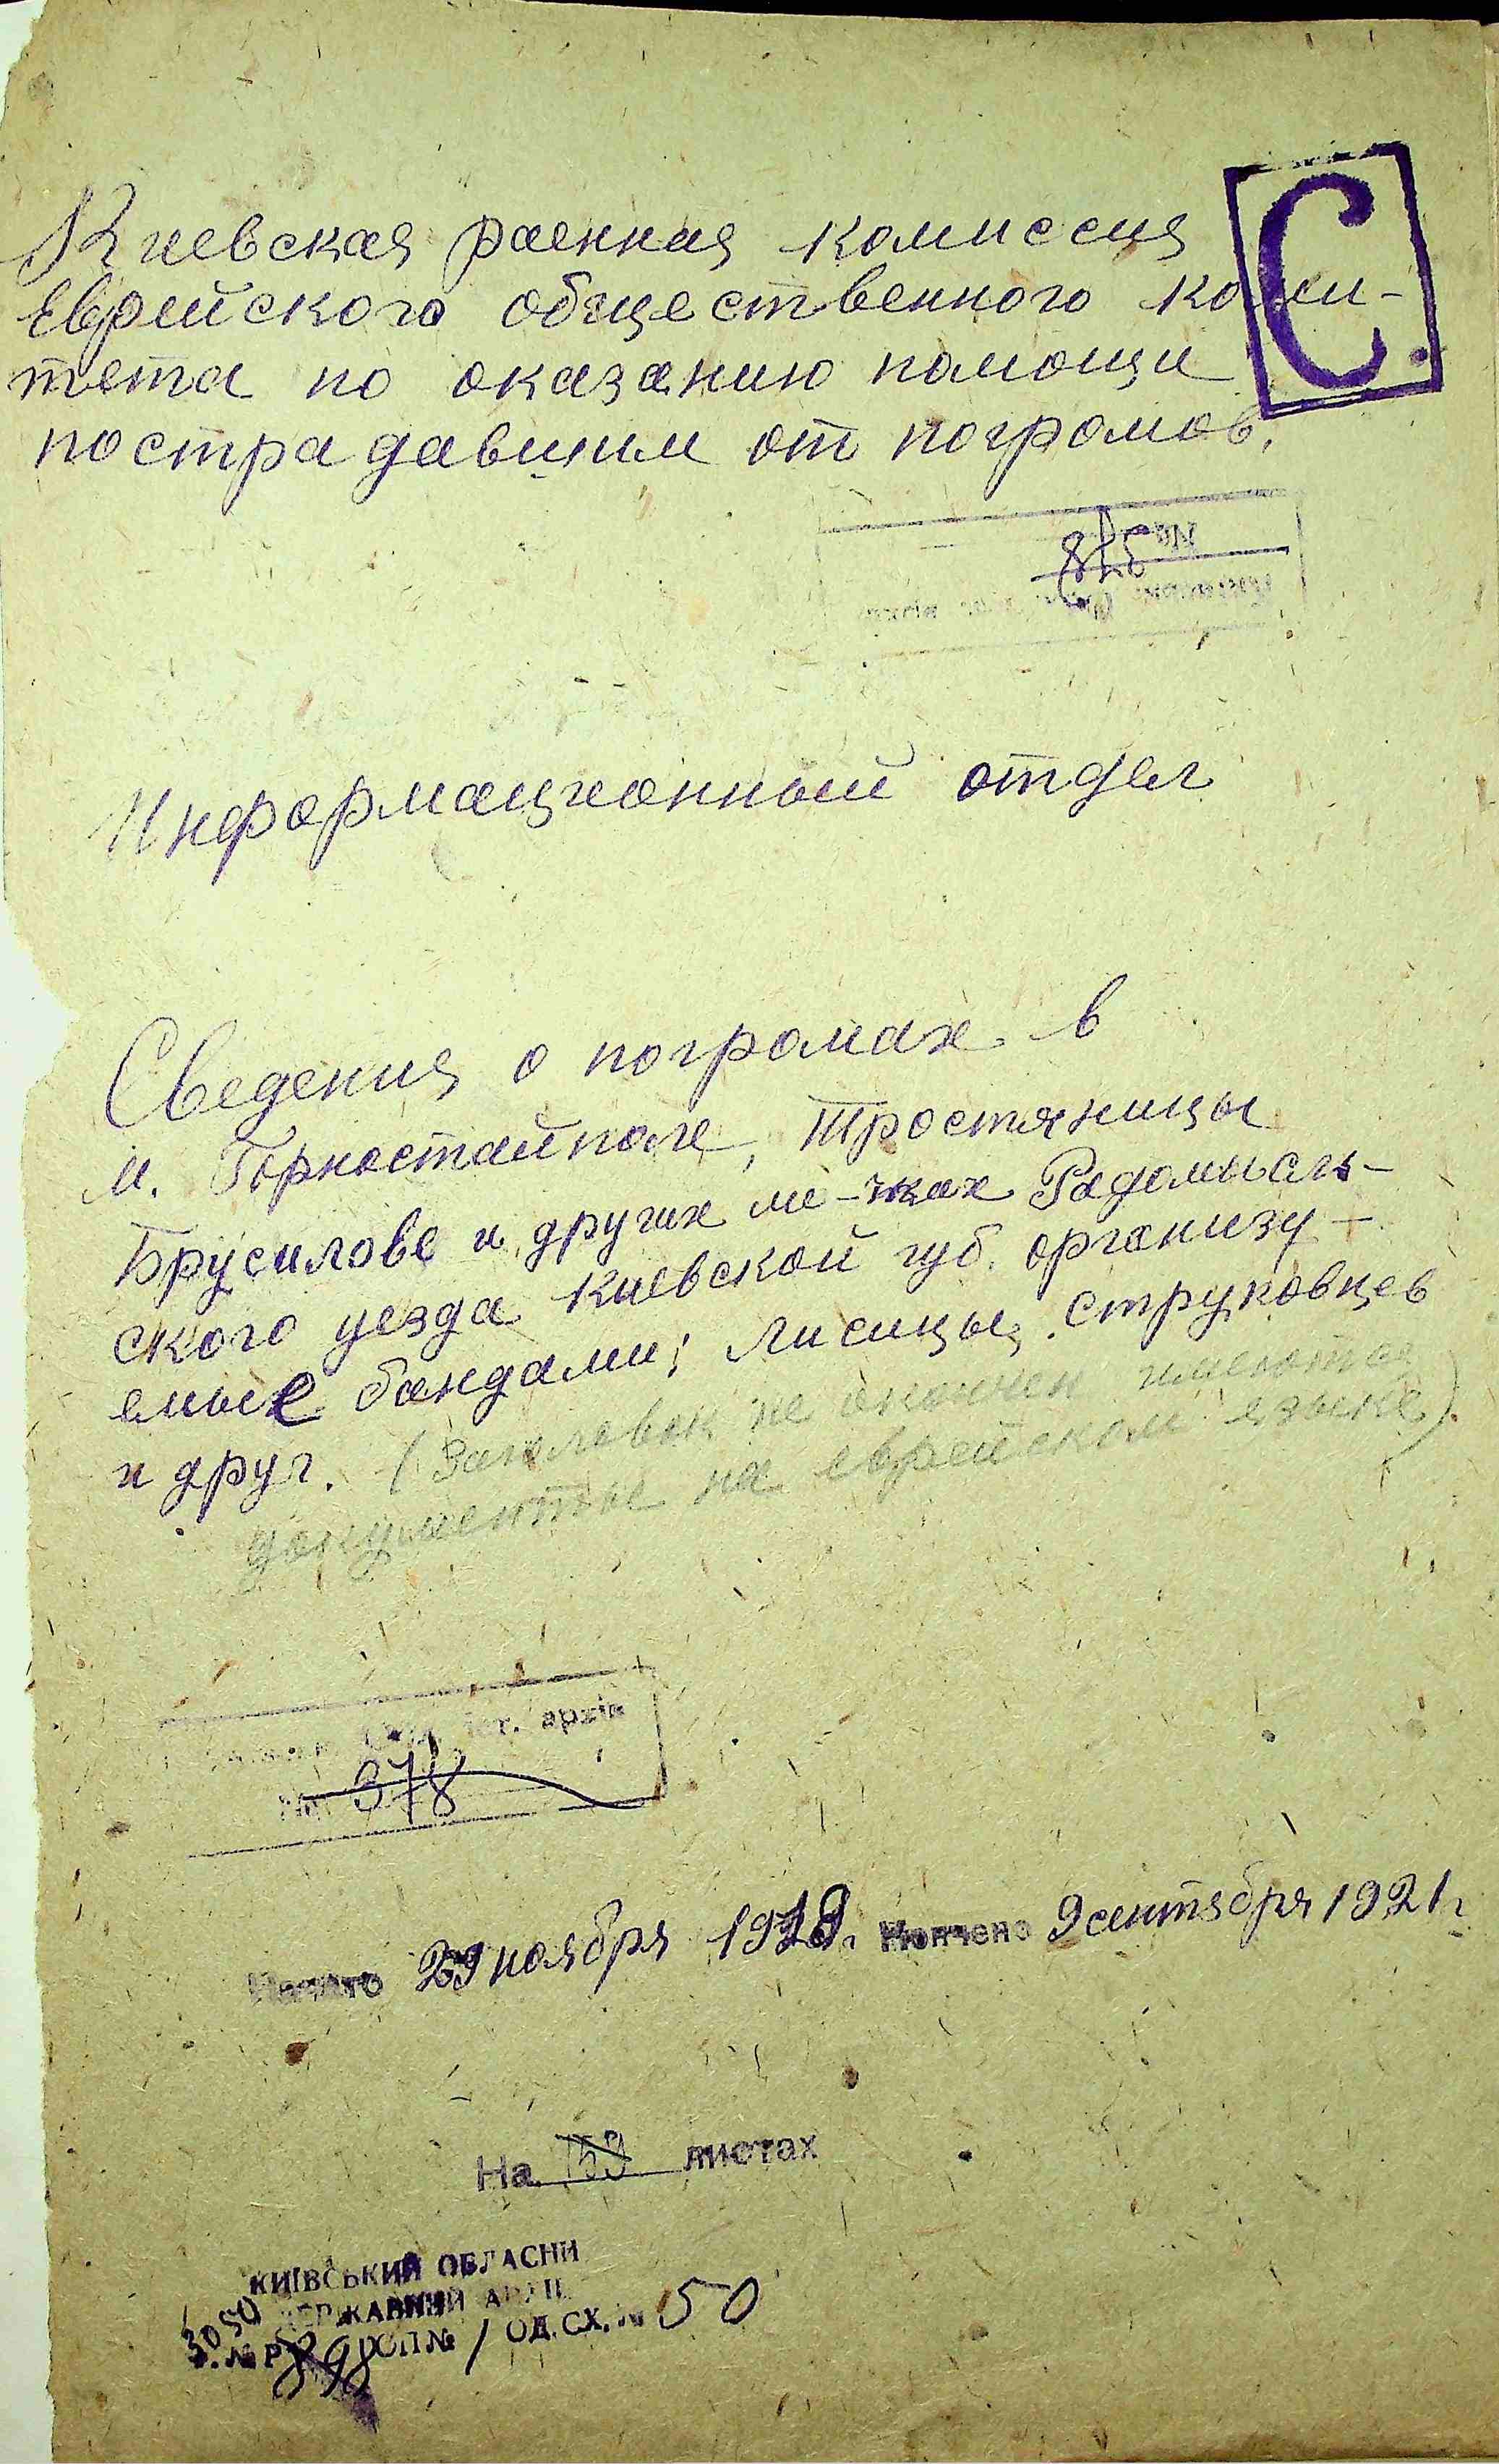 Киевская раенная комиссия
С
Еврейского общественного коми-
тета по оказанию помощи
пострадавшим от погромов.
№ 815
Информационный отдел
Сведения о погромах в
м. Горностайполе, Тростяницы
Брусилове и других ме-чках Радомысль-
ского уезда Киевской губ. организу-
емые бандами: Лисицы, Струковцев
и друг. (Заголовок не окончен имеются
документы на еврейском языке).
іст. архів
№ 378
Начато 29 ноября 1919г. Кончено 9 сентября 1921г.
На 153 листах
КИЇВСЬКИЙ ОБЛАСНИ
ДЕРЖАВНИЙ АРХІВ
3050
Ф. № Р 898 ОП № 1 ОД. СХ. № 50